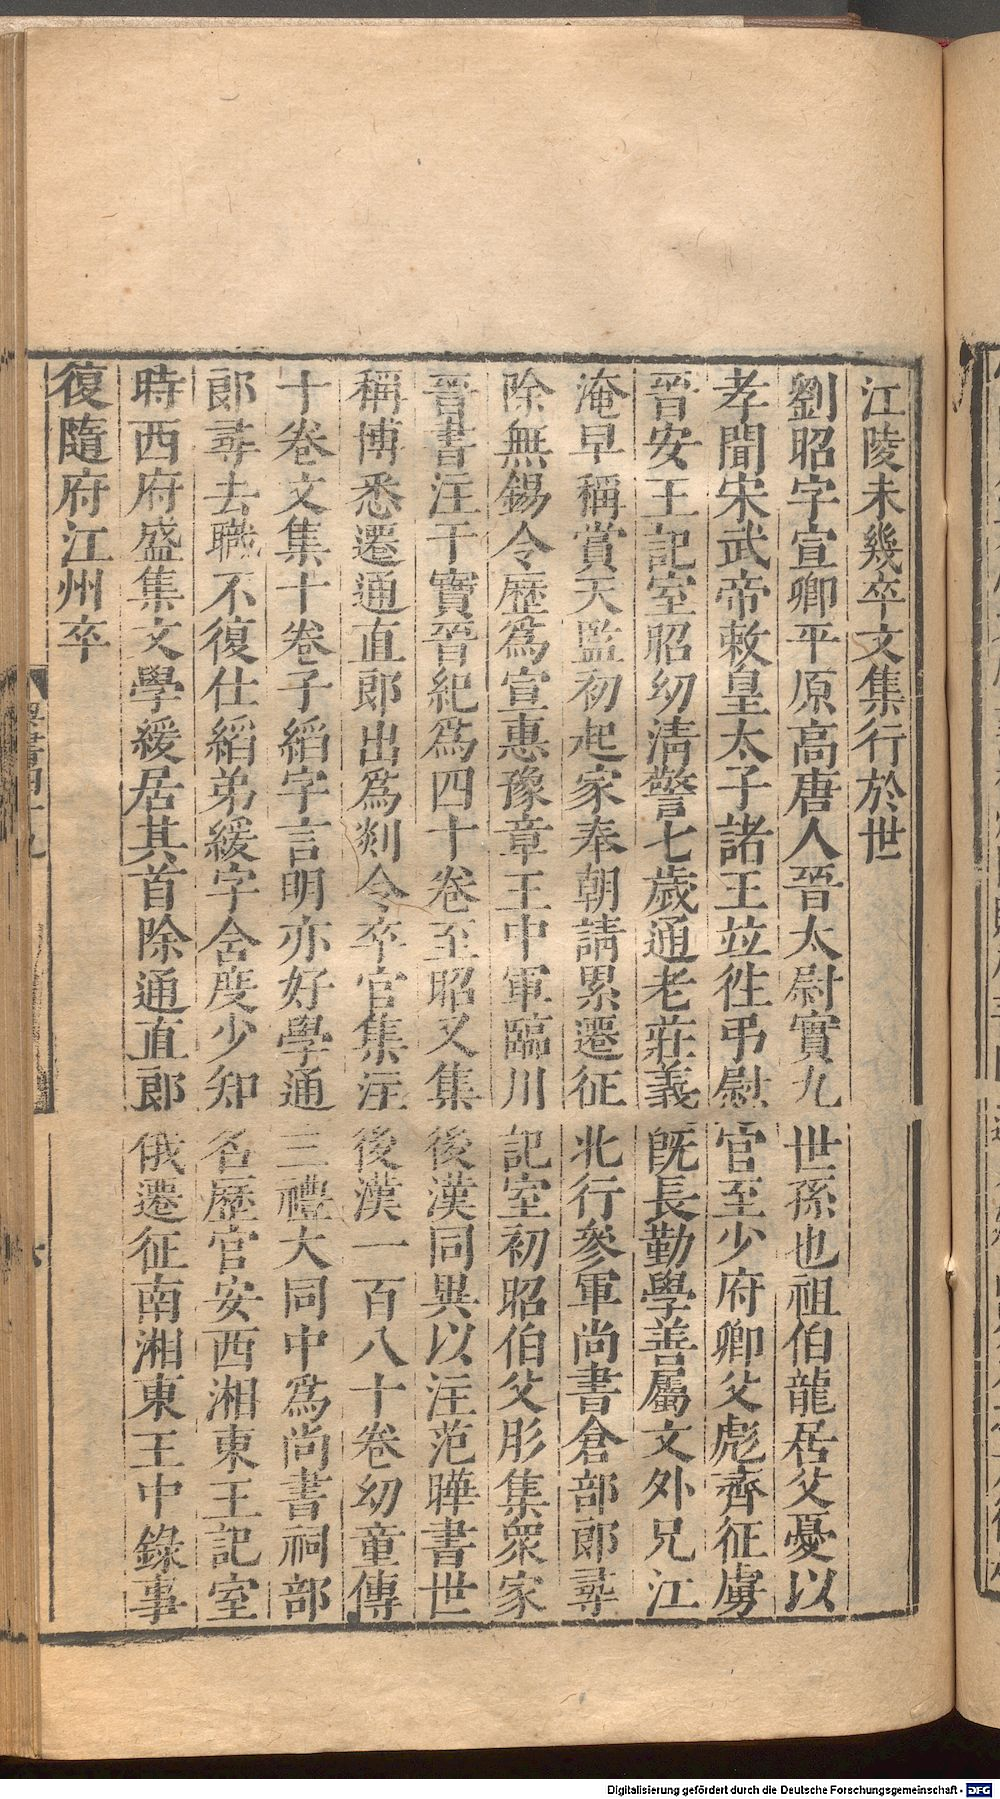 江陵未幾卒文集行於世
劉昭字宣卿平原高唐人晉太尉實九世孫也祖伯龍居父憂以
孝聞宋武帝敕皇太子諸王竝徃弔慰官至少府卿父彪齊征虜
晉安王記室昭幼清警七歲通老莊義旣長勤學善屬文外兄江
淹早稱賞天監初起家奉朝請累遷征北行參軍尚書倉部郎尋
除無錫令歷爲宣惠豫章王中軍臨川記室初昭伯父肜集衆家
晉書注干寶晉紀爲四十卷至昭又集後漢同異以注范曄書世
稱博悉遷通直郎出爲剡令卒官集注後漢一百八十卷幼童傳
十卷文集十卷子縚字言明亦好學通三禮大同中爲尚書祠部
郎尋去職不復仕縚弟緩字含度少知名歷官安西湘東王記室
時西府盛集文學緩居其首除通直郎俄遷征南湘東王中錄事
復隨府江州卒
梁書四十九
六
Digitalisierung gefördert durch die Deutsche Forschungsgemeinschaft - DFG